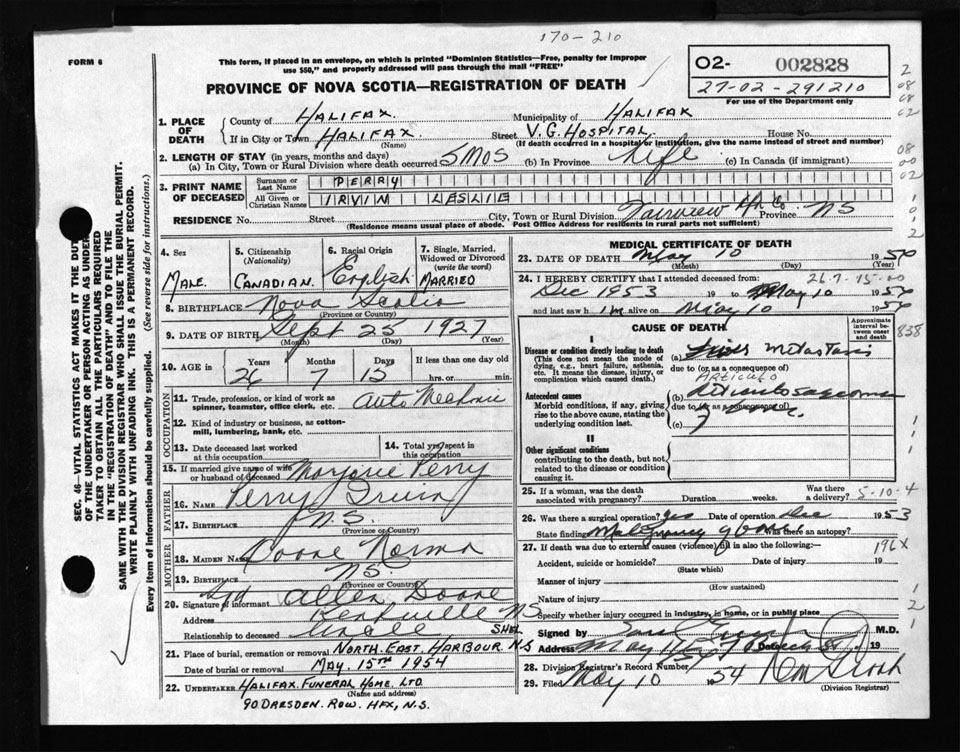 170-210
FORM 6
This form, if placed in an envelope, on which is printed "Dominion Statistics—Free, penalty for improper
use $50," and properly addressed will pass through the mail "FREE"
PROVINCE OF NOVA SCOTIA—REGISTRATION OF DEATH
02- 002828
27-02-291210
For use of the Department only
1. PLACE OF DEATH
County of HALIFAX. Municipality of HALIFAX
If in City or Town HALIFAX. (Name) Street V.G. HOSPITAL. House No.
(If death occurred in a hospital or institution, give the name instead of street and number)
2. LENGTH OF STAY (in years, months and days)
(a) In City, Town or Rural Division where death occurred 5 MOS (b) In Province Life (c) In Canada (if immigrant)
3. PRINT NAME OF DECEASED
Surname or Last Name PERRY
All Given or Christian Names IRVIN LESLIE
RESIDENCE No. Street City, Town or Rural Division Fairview Hfx Co Province NS
(Residence means usual place of abode. Post Office Address for residents in rural parts not sufficient)
4. Sex MALE.
5. Citizenship (Nationality) CANADIAN.
6. Racial Origin English
7. Single, Married, Widowed or Divorced (write the word) MARRIED
8. BIRTHPLACE Nova Scotia
(Province or Country)
9. DATE OF BIRTH Sept 25 1927
(Month) (Day) (Year)
10. AGE in Years Months Days If less than one day old
26 7 15 hrs. or min.
OCCUPATION
11. Trade, profession or kind of work as spinner, teamster, office clerk, etc. Auto Mechanic
12. Kind of industry or business, as cotton-mill, lumbering, bank, etc.
13. Date deceased last worked at this occupation
14. Total years spent in this occupation
15. If married give name of wife or husband of deceased Marjorie Perry
FATHER
16. NAME Perry Irvin
17. BIRTHPLACE N.S.
(Province or Country)
MOTHER
18. MAIDEN NAME Doane Norma
19. BIRTHPLACE NS
(Province or Country)
20. Signature of informant Allen Doane
Address NS
Relationship to deceased Uncle
21. Place of burial, cremation or removal NORTH EAST HARBOUR N.S
SHEL
Date of burial or removal MAY. 15TH 1954
22. UNDERTAKER HALIFAX FUNERAL HOME. LTD
(Name and address)
90 DRESDEN. ROW. HFX, N.S.
MEDICAL CERTIFICATE OF DEATH
23. DATE OF DEATH May 10 1954
(Month) (Day) (Year)
24. I HEREBY CERTIFY that I attended deceased from: 26-7-15-00
Dec 1953 19 to May 10 1954
and last saw h im alive on May 10 1954
CAUSE OF DEATH
Approximate interval between onset and death
838
I
Disease or condition directly leading to death
(This does not mean the mode of dying, e.g., heart failure, asthenia, etc. It means the disease, injury, or complication which caused death.)
(a) Liver metastasis
due to (or as a consequence of)
Antecedent causes
Morbid conditions, if any, giving rise to the above cause, stating the underlying condition last.
(b)
due to (or as a consequence of)
(c)
II
Other significant conditions
contributing to the death, but not related to the disease or condition causing it.
25. If a woman, was the death associated with pregnancy? Duration weeks. Was there a delivery? 5-10-4
26. Was there a surgical operation? yes Date of operation Dec 1953
State finding Was there an autopsy?
27. If death was due to external causes (violence) fill in also the following:— 196X
Accident, suicide or homicide? Date of injury 19
(State which)
Manner of injury
(How sustained)
Nature of injury
Specify whether injury occurred in industry, in home, or in public place
Signed by M.D.
Address Date 19
28. Division Registrar's Record Number
29. Filed May 10 1954
(Division Registrar)
SEC. 46—VITAL STATISTICS ACT MAKES IT THE DUTY
OF THE UNDERTAKER OR PERSON ACTING AS UNDER-
TAKER TO OBTAIN ALL THE PARTICULARS REQUIRED
IN THE "REGISTRATION OF DEATH" AND TO FILE THE
SAME WITH THE DIVISION REGISTRAR WHO SHALL ISSUE THE BURIAL PERMIT.
WRITE PLAINLY WITH UNFADING INK. THIS IS A PERMANENT RECORD.
Every item of information should be carefully supplied. (See reverse side for instructions.)